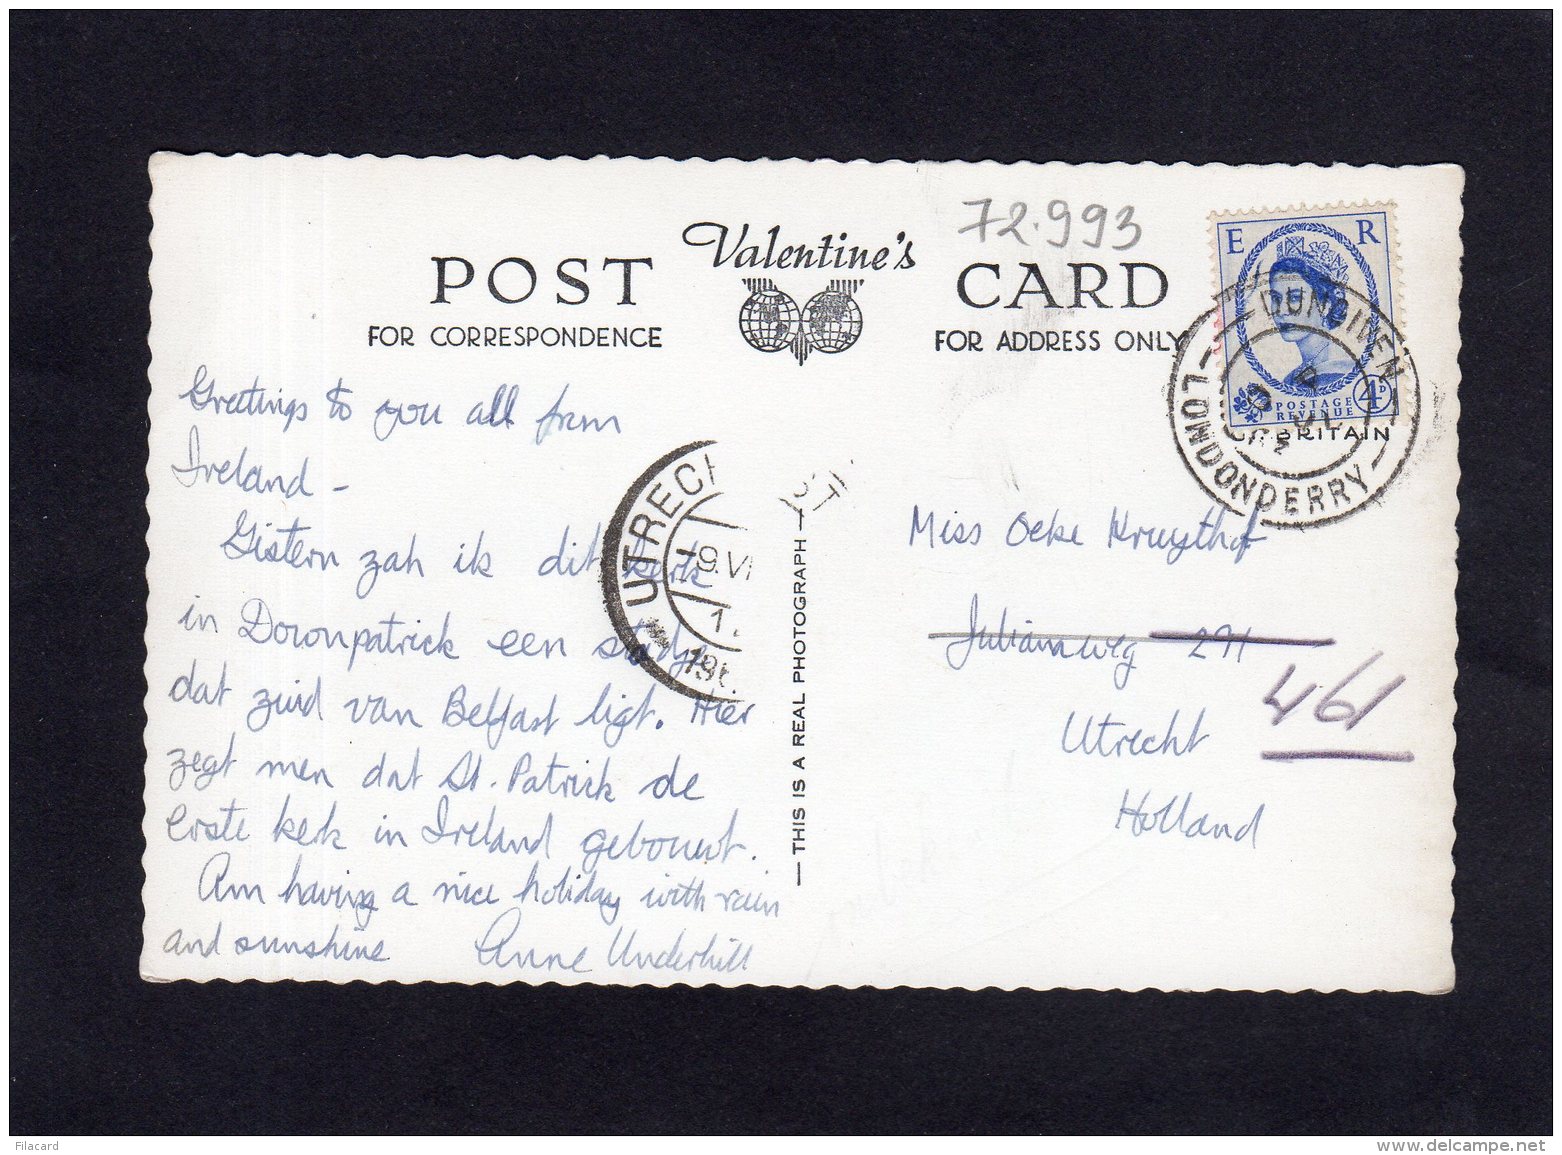 72.993
Valentine's
POST CARD
FOR CORRESPONDENCE
FOR ADDRESS ONLY
E R
POSTAGE
REVENUE
4D
BRITAIN
DUNGIVEN
LONDONDERRY
Greetings to you all from
Ireland -
Gistern zah ik dit kerk
in Downpatrick een stadje
dat zuid van Belfast ligt. Hier
zegt men dat St. Patrick de
erste kerk in Ireland gebouwt.
Am having a nice holiday with rain
and sunshine Anne Underhill
UTRECH
9.VI
196
— THIS IS A REAL PHOTOGRAPH —
Miss Ocke Kruythof
Julianaweg 211
461
Utrecht
Holland
Filacard
www.delcampe.net